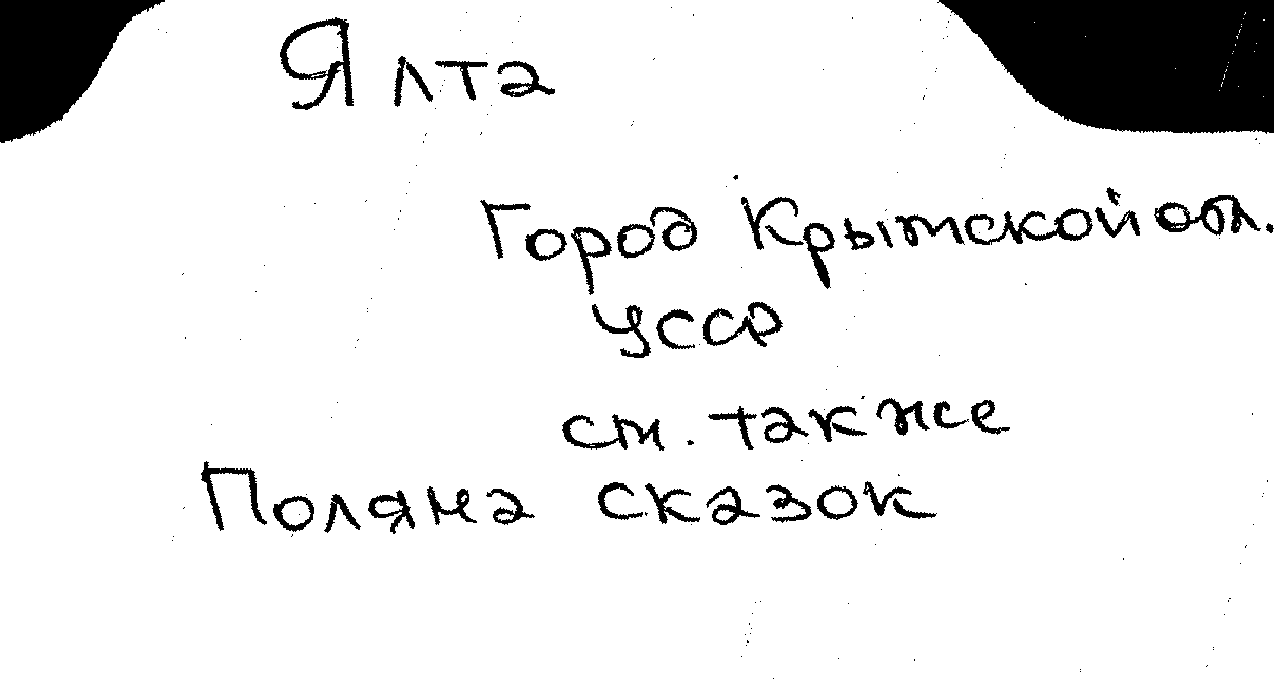 Ялта
Город Крымской обл.
УССР
см. также
Поляна сказок